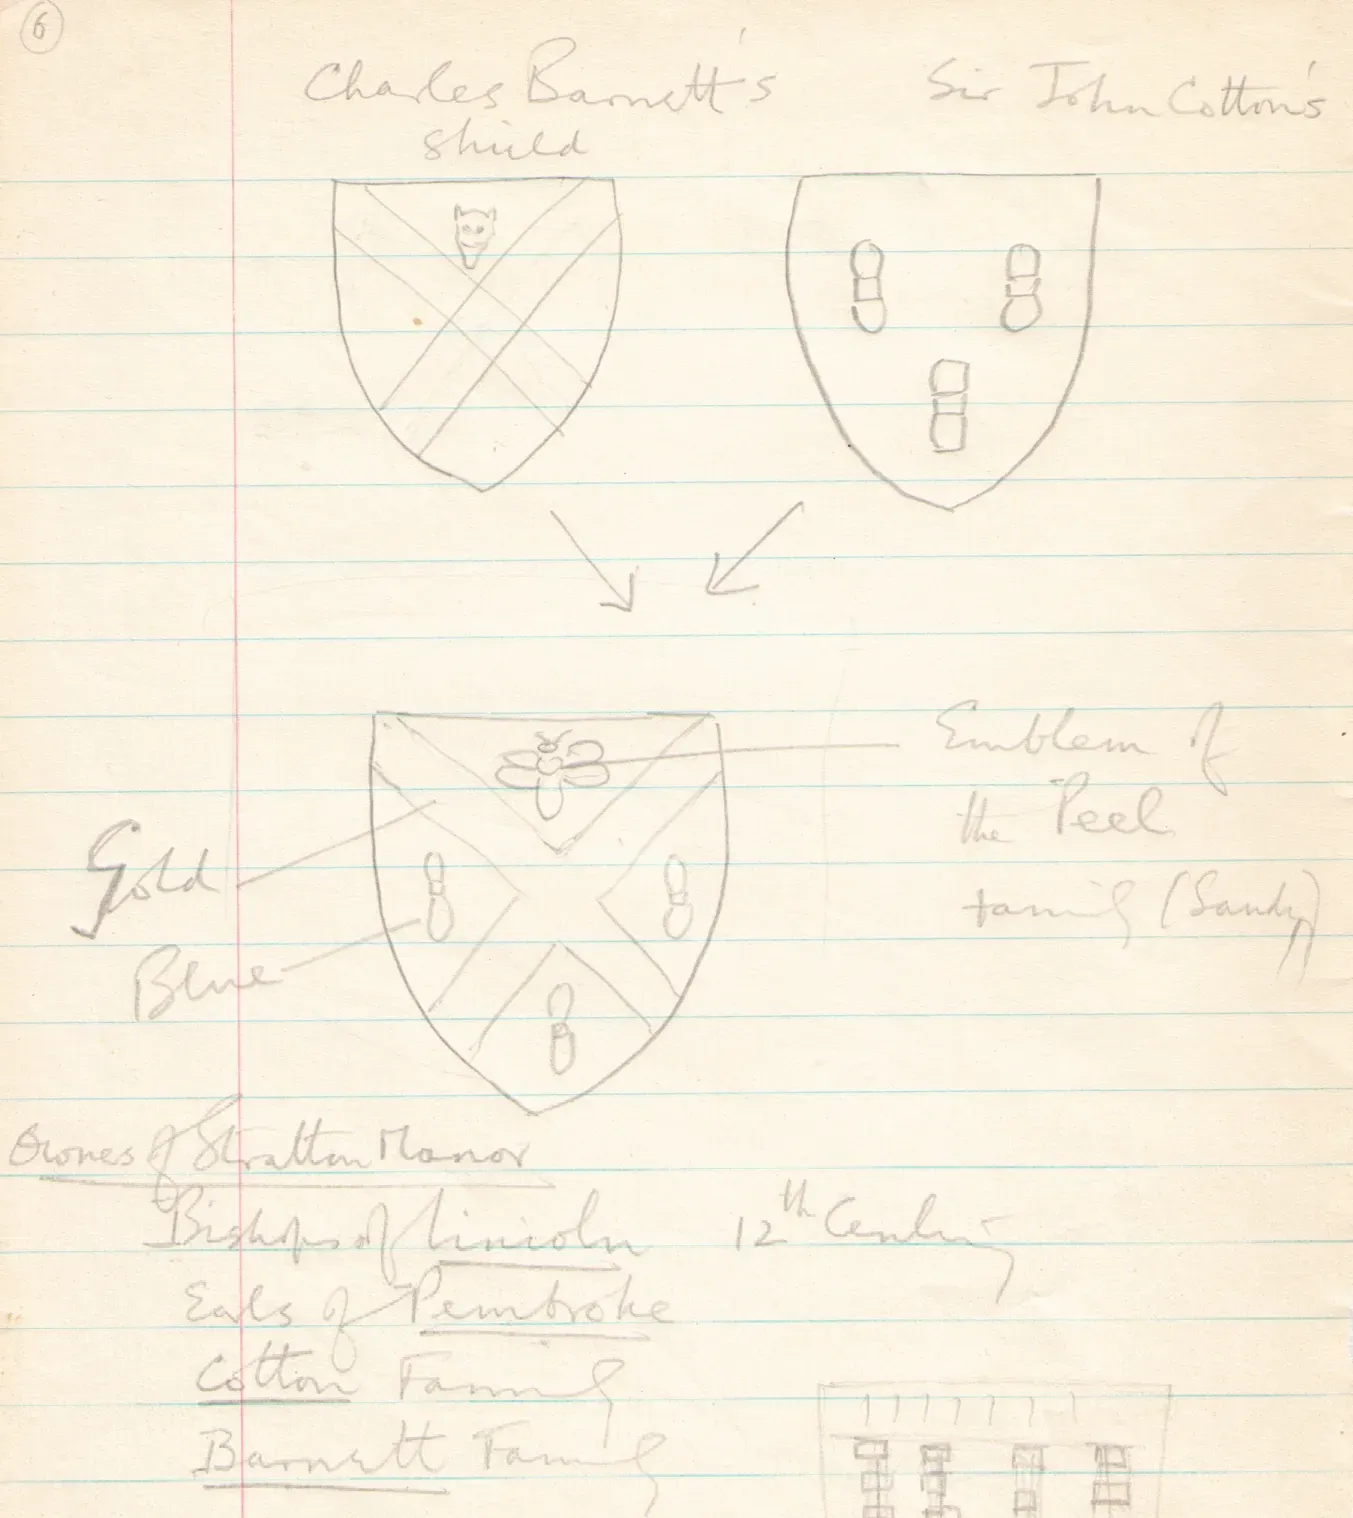 6
Charles Barnett's
shield
Sir John Cotton's
Emblem of
the Peel
family (Sandy)
Gold
Blue
Owners of Stratton Manor
Bishops of Lincoln 12th Century
Earls of Pembroke
Cotton Family
Barnett Family